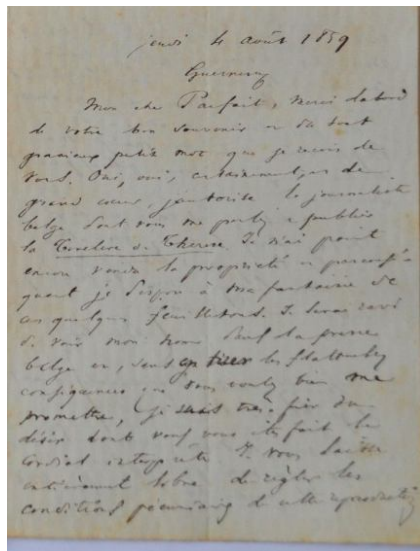 jeudi 4 août 1859
Guernesey
Mon cher Parfait, merci d'abord
de votre bon souvenir et du tout
gracieux petit mot que je reçois de
vous. Oui, oui, certainement, et de
grand cœur, j'autorise le journaliste
belge dont vous me parlez à publier
la de Thérèse. Je n'ai point
encore vendu la propriété et
quant je dispose à ma fantaisie de
ces quelques feuilletons. Je serai ravi
de voir mon nom dans la presse
belge et, sans en tirer les flatteuses
conséquences que vous voulez bien me
promettre, je suis très fier du
désir dont vous vous êtes fait le
cordial interprète. Je vous laisse
entièrement libre de régler les
conditions pécuniaires de cette reproduction